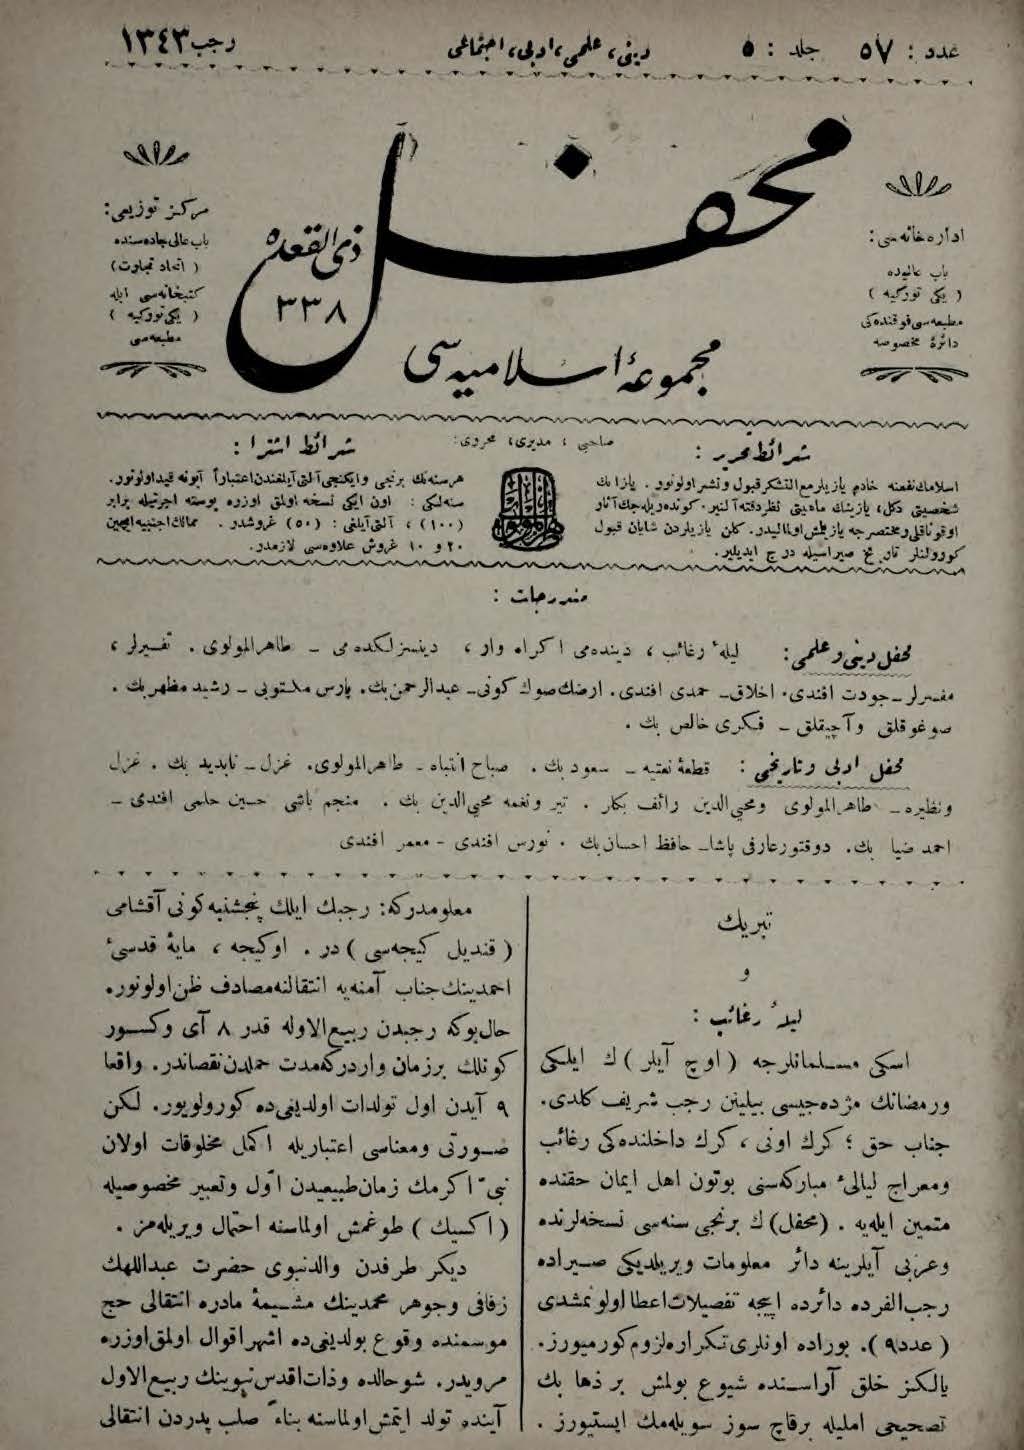 عدد : ٥٧   جلد : ٥
دینی، علمی، ادبی، اجتماعی
رجب ١٣٤٣
محفل
ذی القعده
٣٣٨
مجموعهٔ اسلامیه‌سی
اداره‌خانه‌سی :
باب عالیده
( یکی تورکیه )
مطبعه‌سی فوقنده‌کی
دائرهٔ مخصوصه
مرکز توزیعی :
باب عالی جاده‌سنده
( اتحاد تجارت )
کتبخانه‌سی ایله
( یکی تورکیه )
مطبعه‌سی
شرائط تحریر :
اسلامك نفعنه خادم یازیلر مع التشکر قبول و نشر اولونور . یازانك
شخصیتی دکل، یازینك ماهیتی نظر دقته آلنیر. کوندریله‌جك آثار
اوقوناقلی و مختصرجه یازیلمش اولمالیدر. کلن یازیلردن شایان قبول
کورولنلر تاریخ صیراسیله درج ایدیلیر.
صاحبی ، مدیری، محرری :
شرائط اشترا :
هر سنه‌نك برنجی و ایکنجی آلتی آیلغندن اعتباراً آبونه قید اولونور.
سنه‌لکی : اون ایکی نسخه اولق اوزره پوسته اجرتیله برابر
(١٠٠) ، آلتی آیلغی : (٥٠) غروشدر . ممالك اجنبیه ایچین
٢٠ و ١٠ غروش علاوه‌سی لازمدر.
مندرجات :
محفل دینی و علمی : لیلهٔ رغائب ، دینده‌می اکراه وار ، دینسزلکده می ـ طاهرالمولوی . تفسیرلر ،
مفسرلر ـ جودت افندی. اخلاق ـ حمدی افندی. ارضك صوك کونی ـ عبدالرحمن بك. پارس مکتوبی ـ رشید مظهر بك .
صوغوقلق و آجیقلق ـ فکری خالص بك .
محفل ادبی و تاریخی : قطعهٔ نعتیه ـ سعود بك . صباح انتباه ـ طاهرالمولوی. غزل ـ نابدید بك . غزل
ونظیره ـ طاهرالمولوی ومحیی‌الدین رائف بکلر . تیر ونغمه محیی‌الدین بك . منجم باشی حسین حلمی افندی ـ
احمد ضیا بك. دوقتور عارفی پاشا ـ حافظ احسان بك . نورس افندی - معمر افندی
تبریك
و
لیلهٔ رغائب :
اسکی مسلمانلرجه ( اوچ آیلر ) ك ایلکی
ورمضانك مژده‌جیسی بیلینن رجب شریف کلدی.
جناب حق ؛ کرك اونی ، کرك داخلنده‌کی رغائب
ومعراج لیالیٔ مبارکه‌سنی بوتون اهل ایمان حقنده
متمین ایله‌یه . (محفل) ك برنجی سنه‌سی نسخه‌لرنده
وعربی آیلرینه دائر معلومات ویریلدیکی صیراده
رجب‌الفرده دائرده اییجه تفصیلات اعطا اولونمشدی
( عدد ٩ ). بوراده اونلری تکراره لزوم کورمیورز.
یالکز خلق آراسنده شیوع بولمش بر ذهابك
تصحیحی املیله برقاچ سوز سویله‌مك ایستیورز .
معلومدرکه : رجبك ایلك پنجشنبه کونی آقشامی
( قندیل کیجه‌سی ) در . اوکیجه ، مایهٔ قدسیٔ
احمدینك جناب آمنه‌یه انتقالنه مصادف ظن اولونور.
حال بوکه رجبدن ربیع‌الاوله قدر ٨ آی وکسور
کونلك بر زمان واردرکه مدت حملدن نقصاندر. واقعا
٩ آیدن اول تولدات اولدیغی ده کورولویور. لکن
صورتی ومعناسی اعتباریله اکمل مخلوقات اولان
نبیٔ اکرمك زمان طبیعیدن اوّل وتعبیر مخصوصیله
( اکسیك ) طوغمش اولماسنه احتمال ویریله‌مز .
دیکر طرفدن والد نبوی حضرت عبداللهك
زفافی وجوهر محمدینك مشیمهٔ مادره انتقالی حج
موسمنده وقوع بولدیغی ده اشهر اقوال اولمق اوزره
مرویدر. شو حالده وذات اقدس نبوینك ربیع‌الاول
آینده تولد ایتمش اولماسنه بناءً صلب پدردن انتقالی